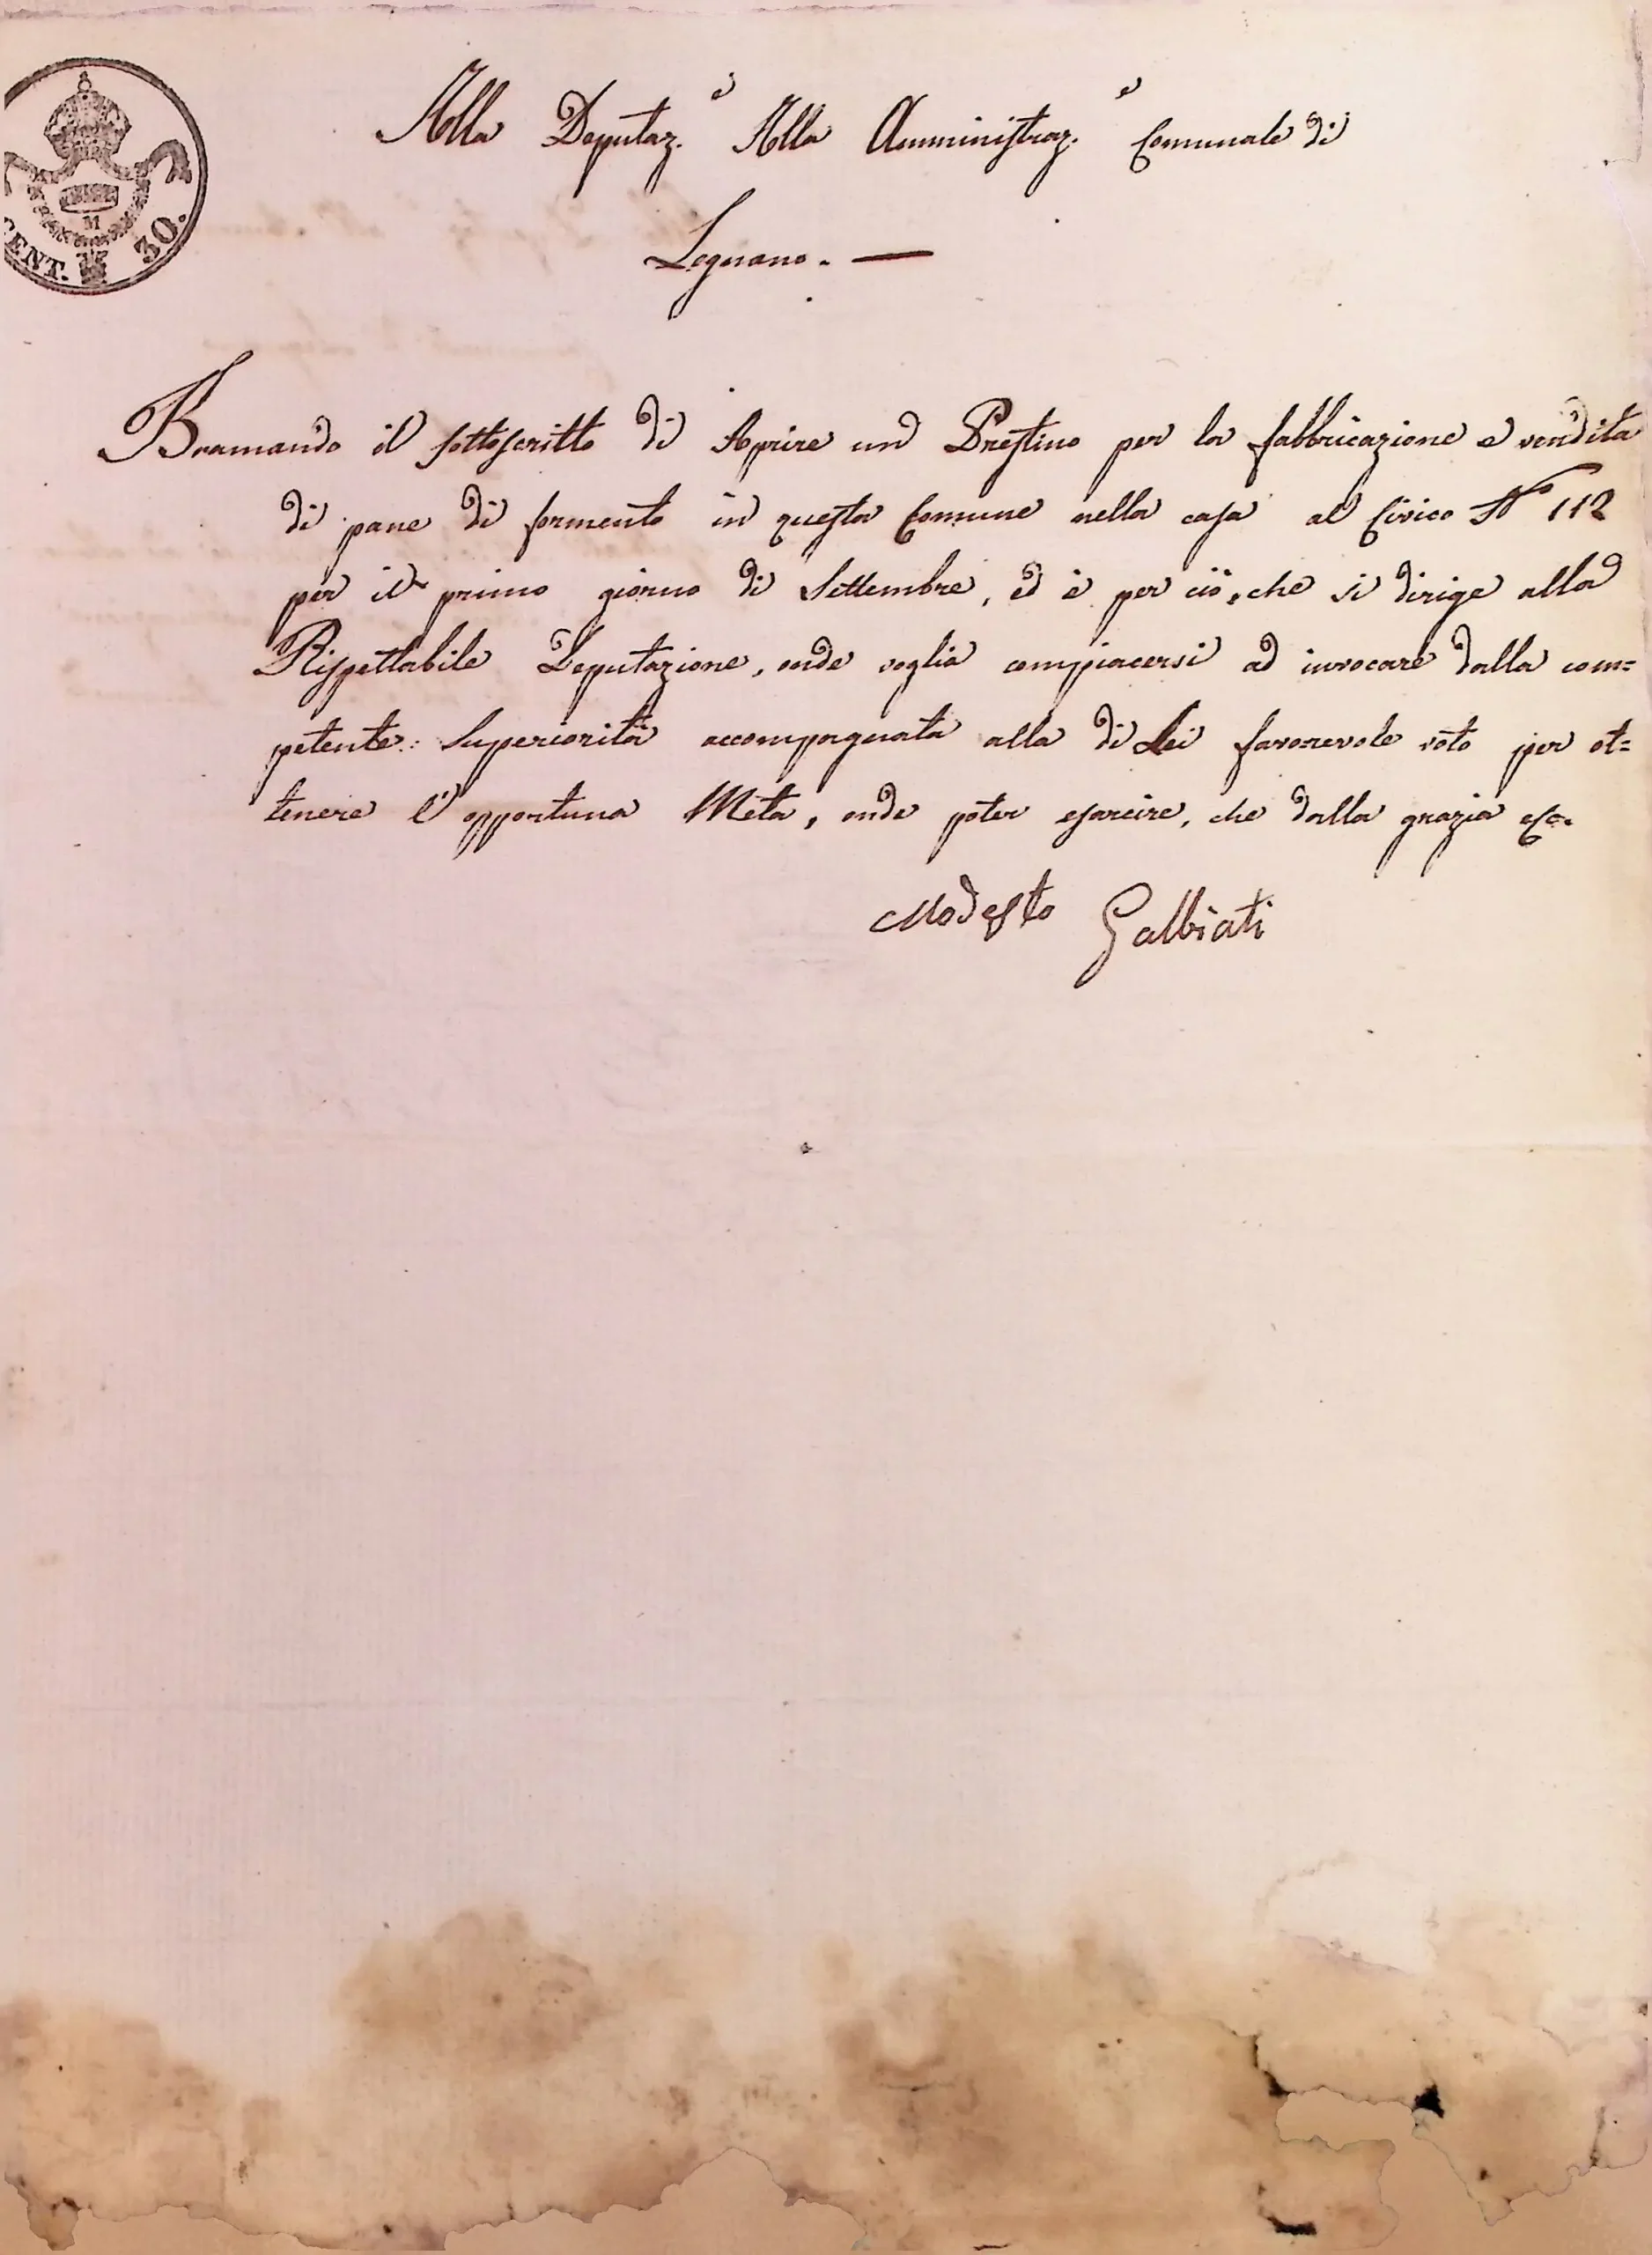 CENT. 30.
M
Alla Deputaz.e Alla Amministraz.e Comunale di
Legnano. —
Bramando il sottoscritto di Aprire un Prestino per la fabbricazione e vendita
di pane di formento in questa Comune nella casa al Civico N° 112
per il primo giorno di Settembre, ed è per ciò, che si dirige alla
Rispettabile Deputazione, onde voglia compiacersi ad invocare dalla com=
petente: Superiorità accompagnata alla di Lei favorevole voto per ot=
tenere l'opportuna Meta, onde poter esarcire, che dalla grazia
Modesto Galbiati